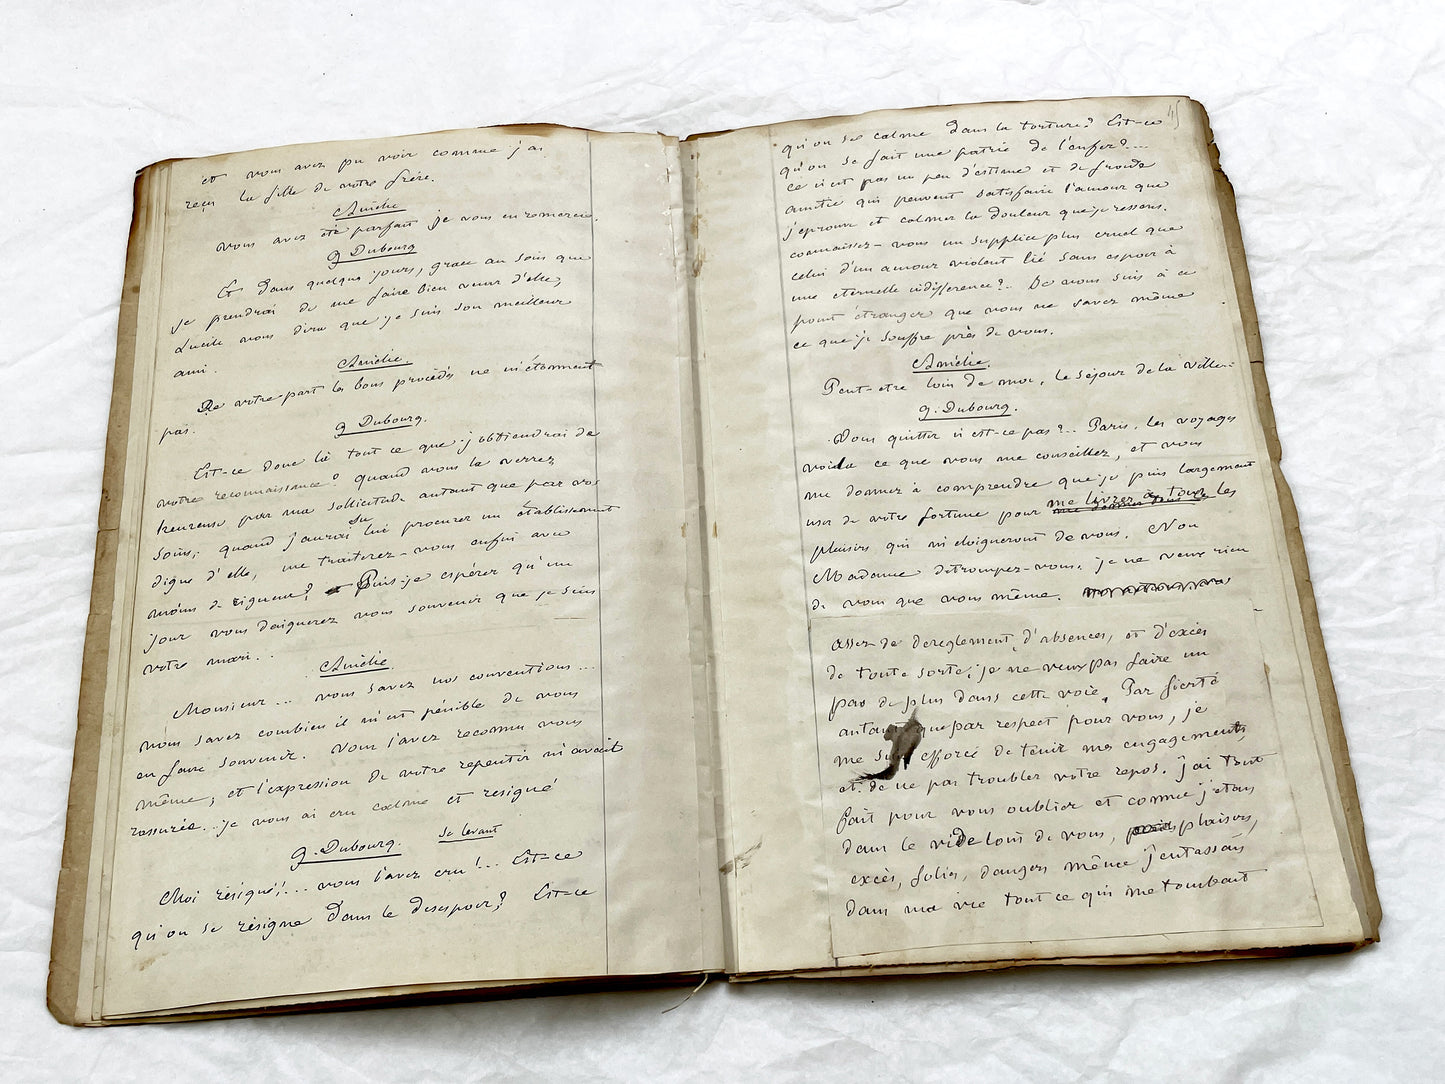 et vous avez pu voir comme j'ai
reçu la fille de votre frère.
Amélie
Vous avez été parfait je vous en remercie.
g Dubourg
Et dans quelques jours, grace au soin que
je prendrai de me faire bien venir d'elle,
Lucile vous dira que je suis son meilleur
ami.
Amélie.
De votre part les bons procédés ne m'étonnent
pas.
g Dubourg.
Est-ce donc là tout ce que j'obtiendrai de
votre reconnaissance? quand vous la verrez
heureuse par ma sollicitude autant que par vos
soins, quand j'aurai su lui procurer un établissement
digne d'elle, me traiterez-vous enfin avec
moins de rigueur? Puis-je espérer qu'un
jour vous daignerez vous souvenir que je suis
votre mari..
Amélie.
Monsieur... vous savez nos conventions...
vous savez combien il m'est pénible de vous
en faire souvenir. Vous l'avez reconnu vous
même, et l'expression de votre repentir m'avait
rassurée... je vous ai cru calme et resigné
g. Dubourg. se levant
Moi résigné!... vous l'avez cru!.. Est-ce
qu'on se résigne dans le desespoir? Est-ce
45
qu'on se calme dans la torture? Est-ce
qu'on se fait une patrie de l'enfer?...
ce n'est pas un peu d'estime et de froide
amitié qui peuvent satisfaire l'amour que
j'eprouve et calmer la douleur que je ressens.
connaissez-vous un supplice plus cruel que
celui d'un amour violent lié sans espoir à
une eternelle indifference?.. De vous suis à ce
point étranger que vous ne savez même
ce que je souffre près de vous.
Amélie.
Peut-etre loin de moi, le séjour de la ville...
g. Dubourg.
Vous quitter n'est-ce pas?.. Paris, les voyages
voila ce que vous me conseillez, et vous
me donnez à comprendre que je puis largement
user de votre fortune pour me livrer à tous les
plaisirs qui m'eloigneront de vous. Non
Madame detrompez-vous, je ne veux rien
de vous que vous même.
assez de dereglement, d'absences, et d'excès
de toute sorte, je ne veux pas faire un
pas de plus dans cette voie. Par fierté
autant que par respect pour vous, je
me suis efforcé de tenir mes engagements
et de ne pas troubler votre repos. j'ai tout
fait pour vous oublier et comme j'etais
dans le vide loin de vous, plaisirs,
excès, folies, dangers même j'entassais
dans ma vie tout ce qui me tombait